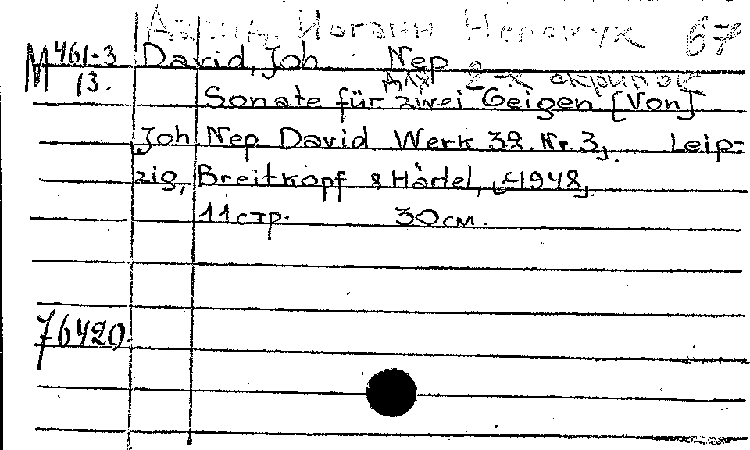 Давид, Иоганн Непомук 67
М 461-3 David, Joh. Nep.
13. для 2-х скрипок
Sonate für zwei Geigen [Von]
Joh Nep David Werk 32. Nr. 3. Leip=
zig, Breitkopf & Härtel, 1948,
11 стр. 30 см.
76420